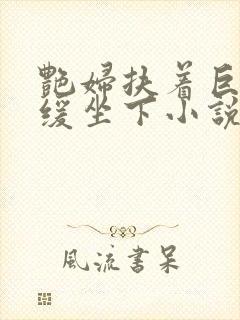 艷婦扶着巨
緩坐下小說
風流書呆